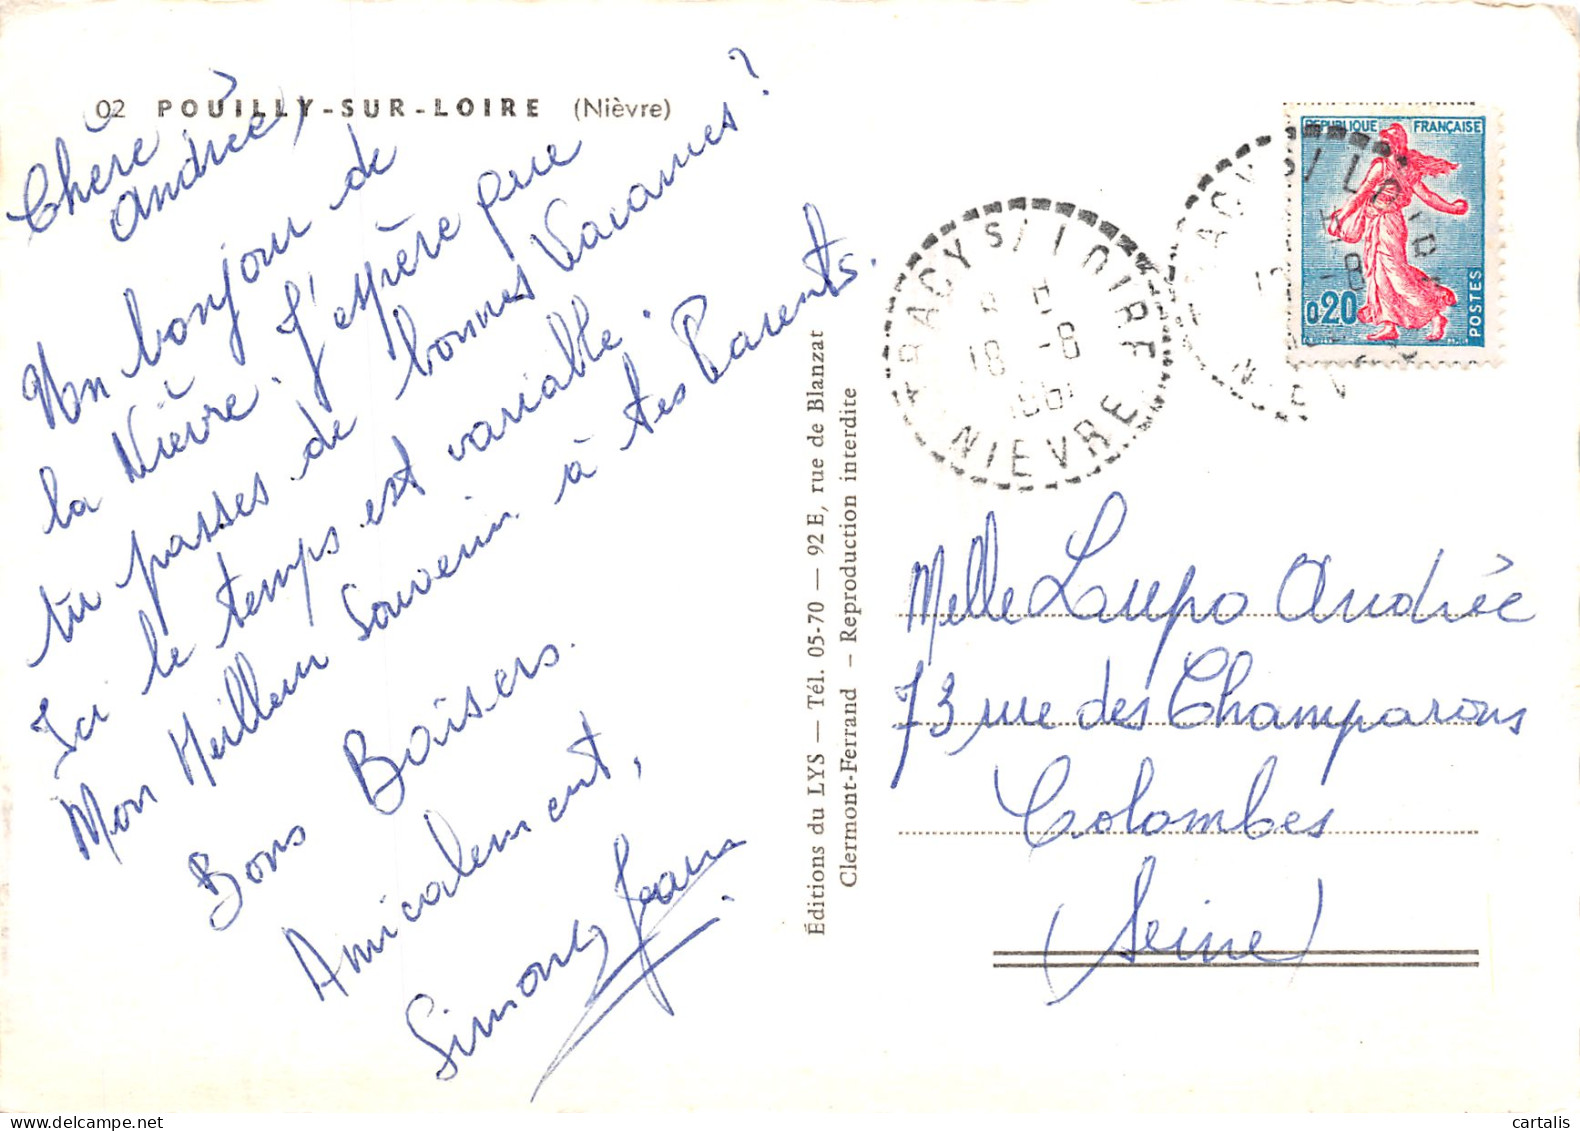 02 POUILLY-SUR-LOIRE (Nièvre)
Chère
Andrée,
Un bonjour de
la Nièvre. J'espère que
tu passes de bonnes Vacances ?
Ici le temps est variable.
Mon Meilleur Souvenir à tes Parents.
Bons Baisers.
Amicalement,
Simone
Éditions du LYS — Tél. 05-70 — 92 E, rue de Blanzat
Clermont-Ferrand — Reproduction interdite
TRACY S/ LOIRE
18 -8
1961
NIEVRE
TRACY S/ LOIRE
-8
NIEV
REPUBLIQUE FRANÇAISE
0,20
POSTES
Melle Lupo Andrée
73 rue des Champarons
Colombes
(Seine)
cartalis